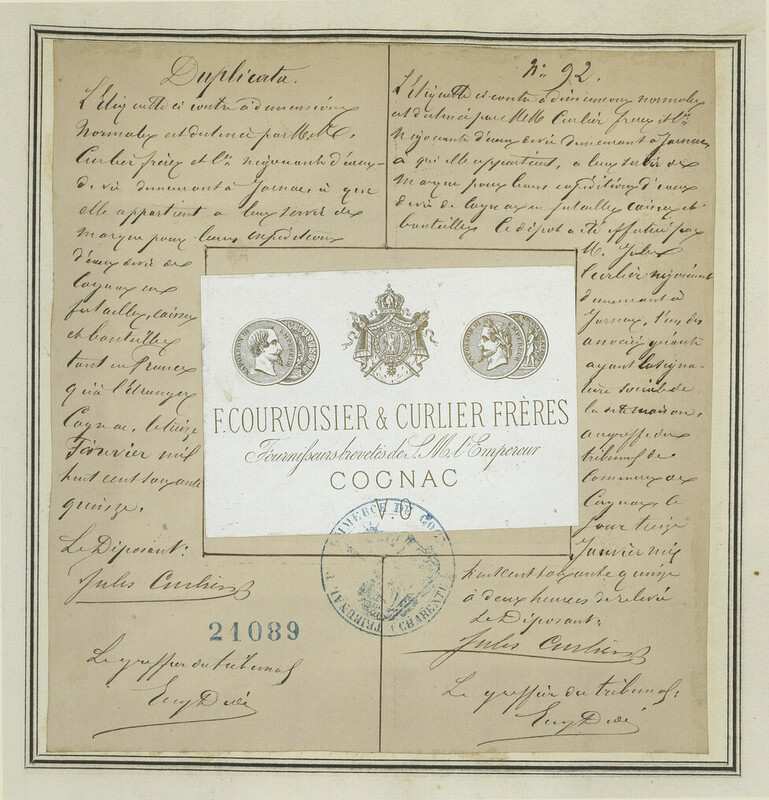 Duplicata.
L'Etiquette ci contre à dimensions
normales est dulencé par M.M.
Curlier frères et Cie négociants d'eaux-
de-vie demeurant à Jarnac, à qui
elle appartient a leur servir de
marque pour leurs expéditions
d'eaux de vie de
Cognac en
futailles, caisses
et bouteilles
tant en France
qu'à l'étranger
Cognac, le treize
Janvier mil
huit cent soixante
quinze.
Le Déposant:
Jules Curlier
21089
Le greffier du tribunal
No 92.
L'Etiquette ci contre à dimensions normales
est dulencé par M.M. Curlier frères et Cie
Négociants d'eaux de vie demeurant à Jarnac,
à qui elle appartient, a leur servir de
marque pour leurs expéditions d'eaux
de vie de Cognac en futailles caisses et
bouteilles Ce dépôt a été effectué par
M. Jules
Curlier négociant
demeurant à
Jarnac, l'un des
associés gérants
ayant la signa-
ture sociale de
la dite maison,
au greffe du
tribunal de
Commerce de
Cognac, le
jour treize
Janvier mil
huit cent soixante quinze
à deux heures de relevée
Le Déposant:
Jules Curlier
Le greffier du tribunal:
NAPOLEON III EMPEREUR
NAPOLEON III EMPEREUR
F. COURVOISIER & CURLIER FRÈRES
Fournisseurs brevetés de S. M. l'Empereur
COGNAC
V.O
TRIBUNAL COMMERCE DE COGNAC
CHARENTE